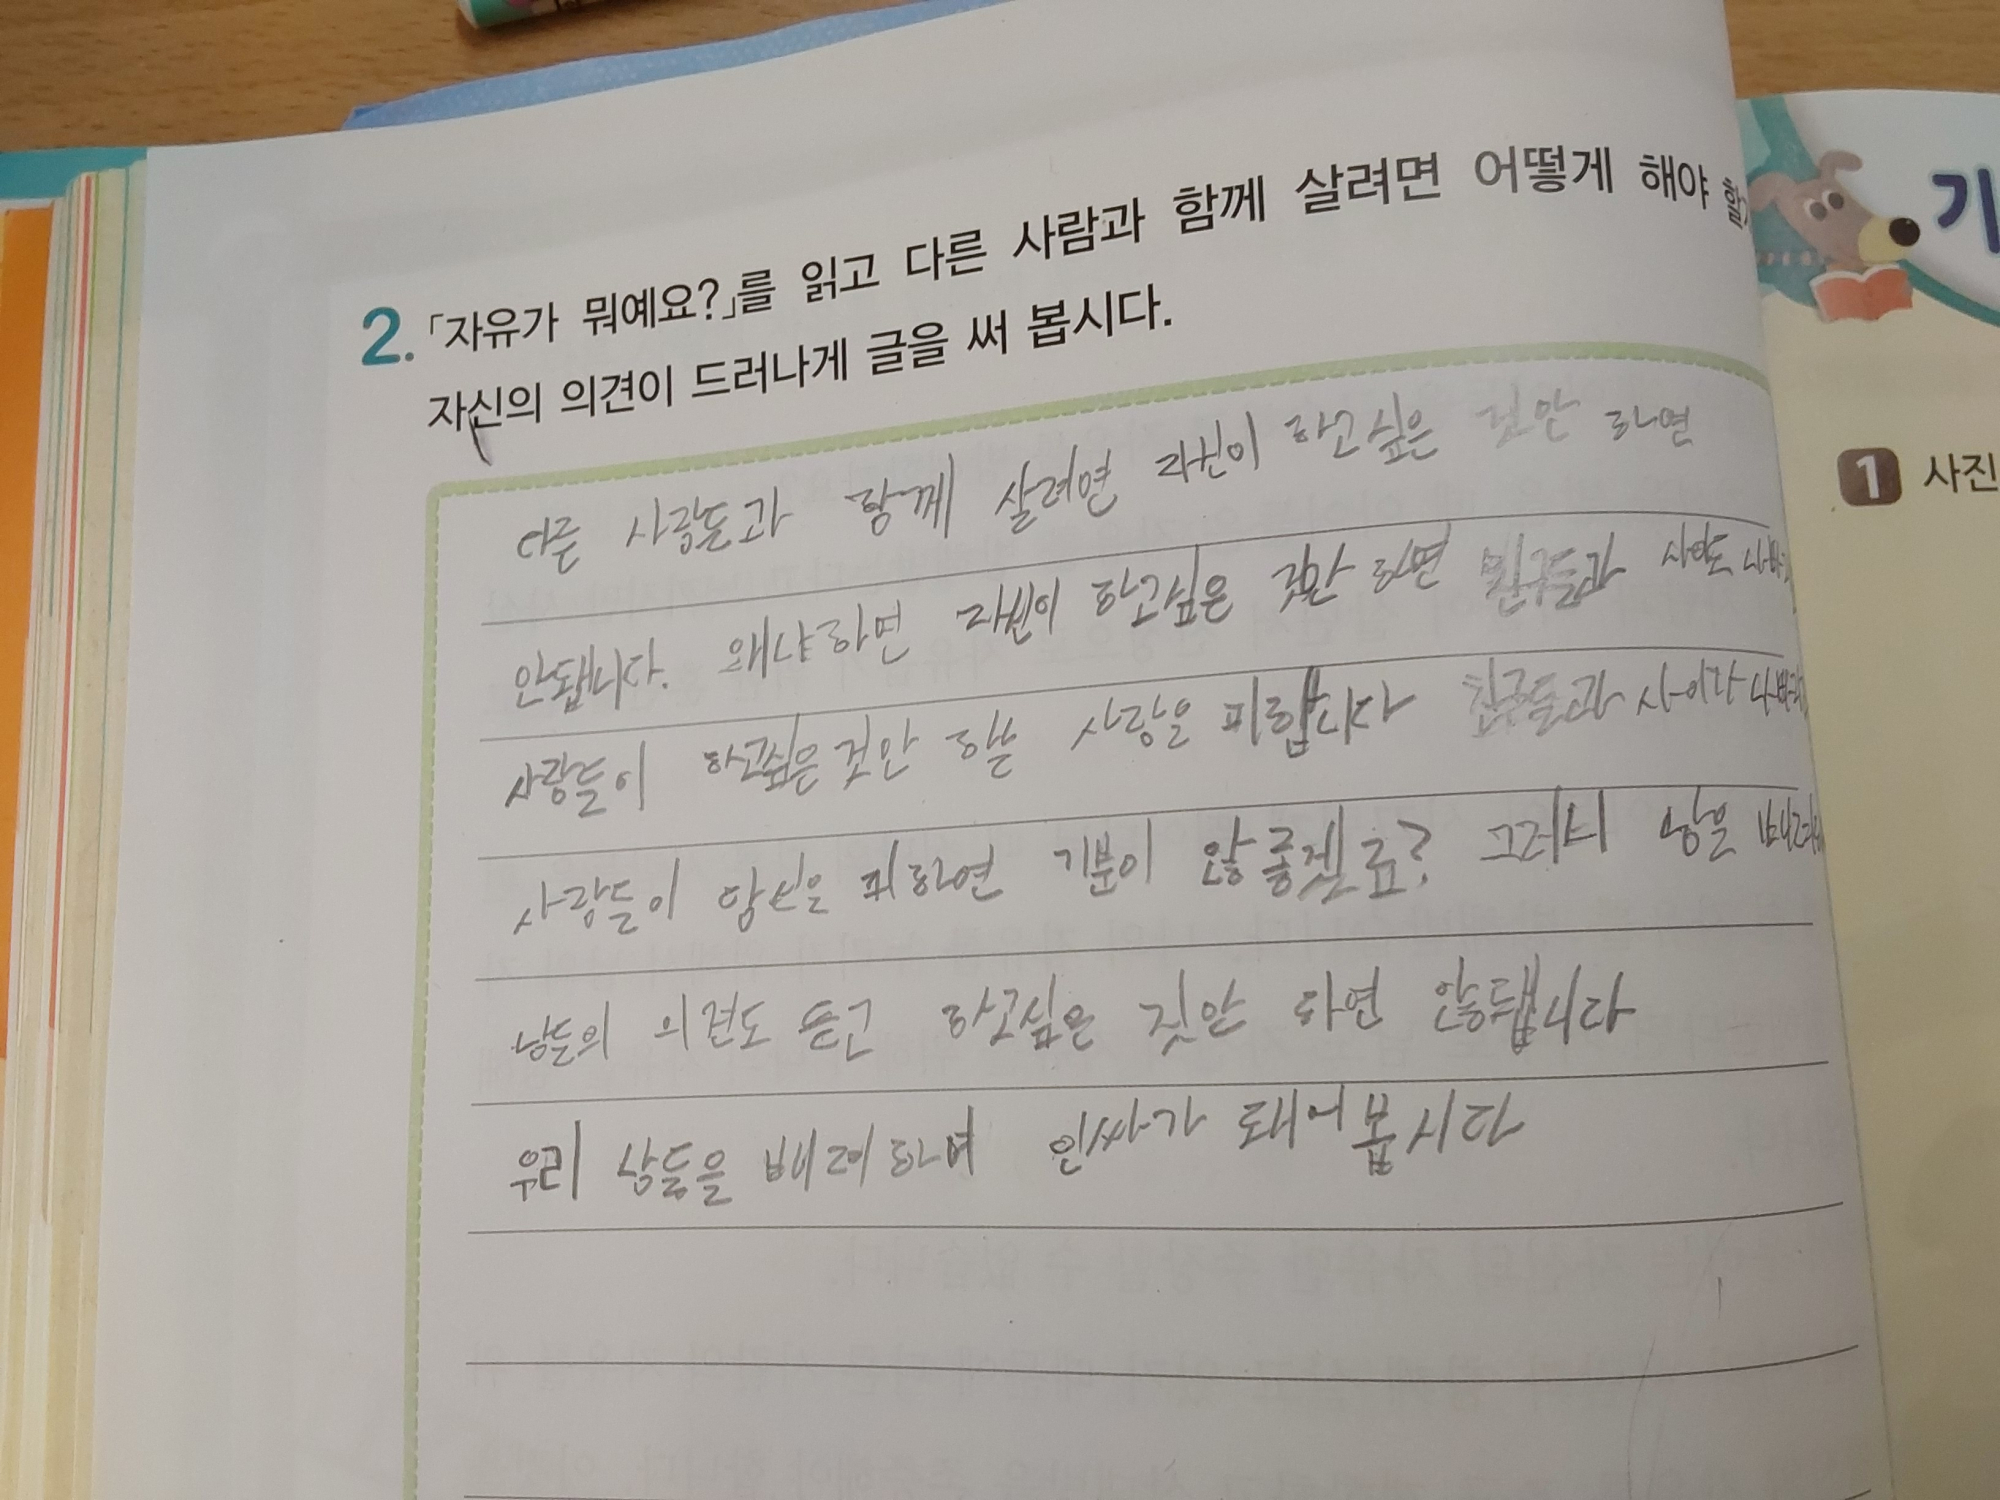 2. 「자유가 뭐예요?」를 읽고 다른 사람과 함께 살려면 어떻게 해야
자신의 의견이 드러나게 글을 써 봅시다.
다른 사람들과 함께 살려면 자신이 하고싶은 것만 하면
안됍니다. 왜냐하면 자신이 하고싶은 것만 하면 친구들과 사이도
사람들이 하고싶은것만 하는 사람을 피합니다 친구들과 사이가
사람들이 당신을 피하면 기분이 않좋겠죠? 그러니 남을
남들의 의견도 듣고 하고싶은 것만 하면 않됍니다
우리 남들을 배려하며 인싸가 돼어봅시다
기
1 사진